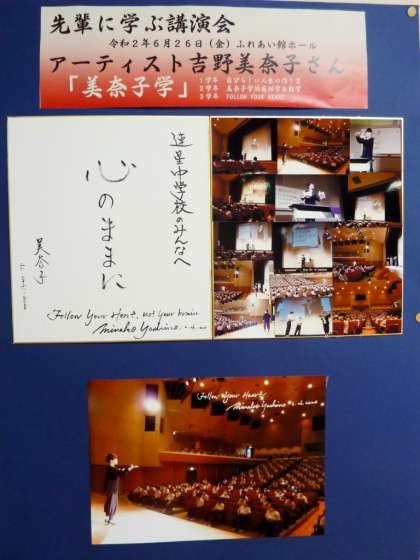 先輩に学ぶ講演会
令和2年6月26日（金）ふれあい館ホール
アーティスト吉野美奈子さん
「美奈子学」
1学年
2学年
3学年 FOLLOW YOUR HEART
中学校のみんなへ
心のままに
美奈子
Follow Your Heart, not your brain
Minako Yoshino
Follow Your Heart
Minako Yoshino